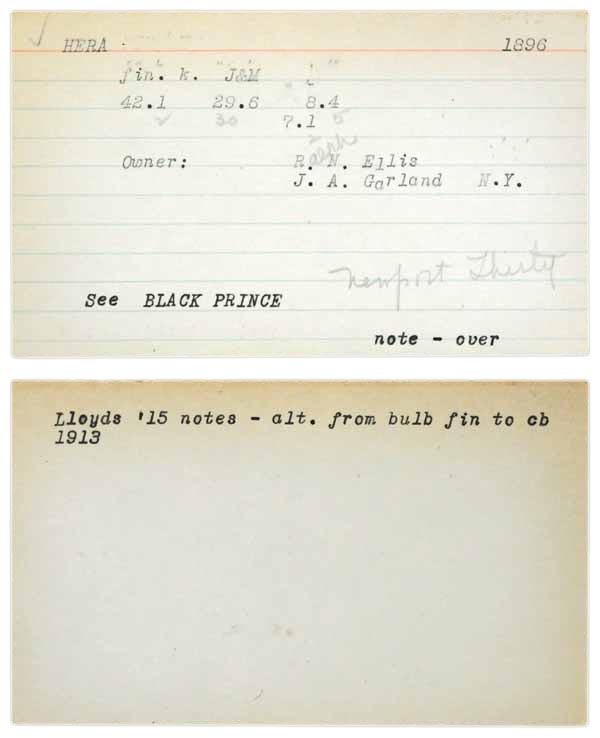 HERA 1896
fin. k. J&M
42.1 29.6 8.4
2 30 5
7.1
Ralph
Owner: R. N. Ellis
J. A. Garland N.Y.
Newport Thirty
See BLACK PRINCE
note - over
Lloyds '15 notes - alt. from bulb fin to cb
1913